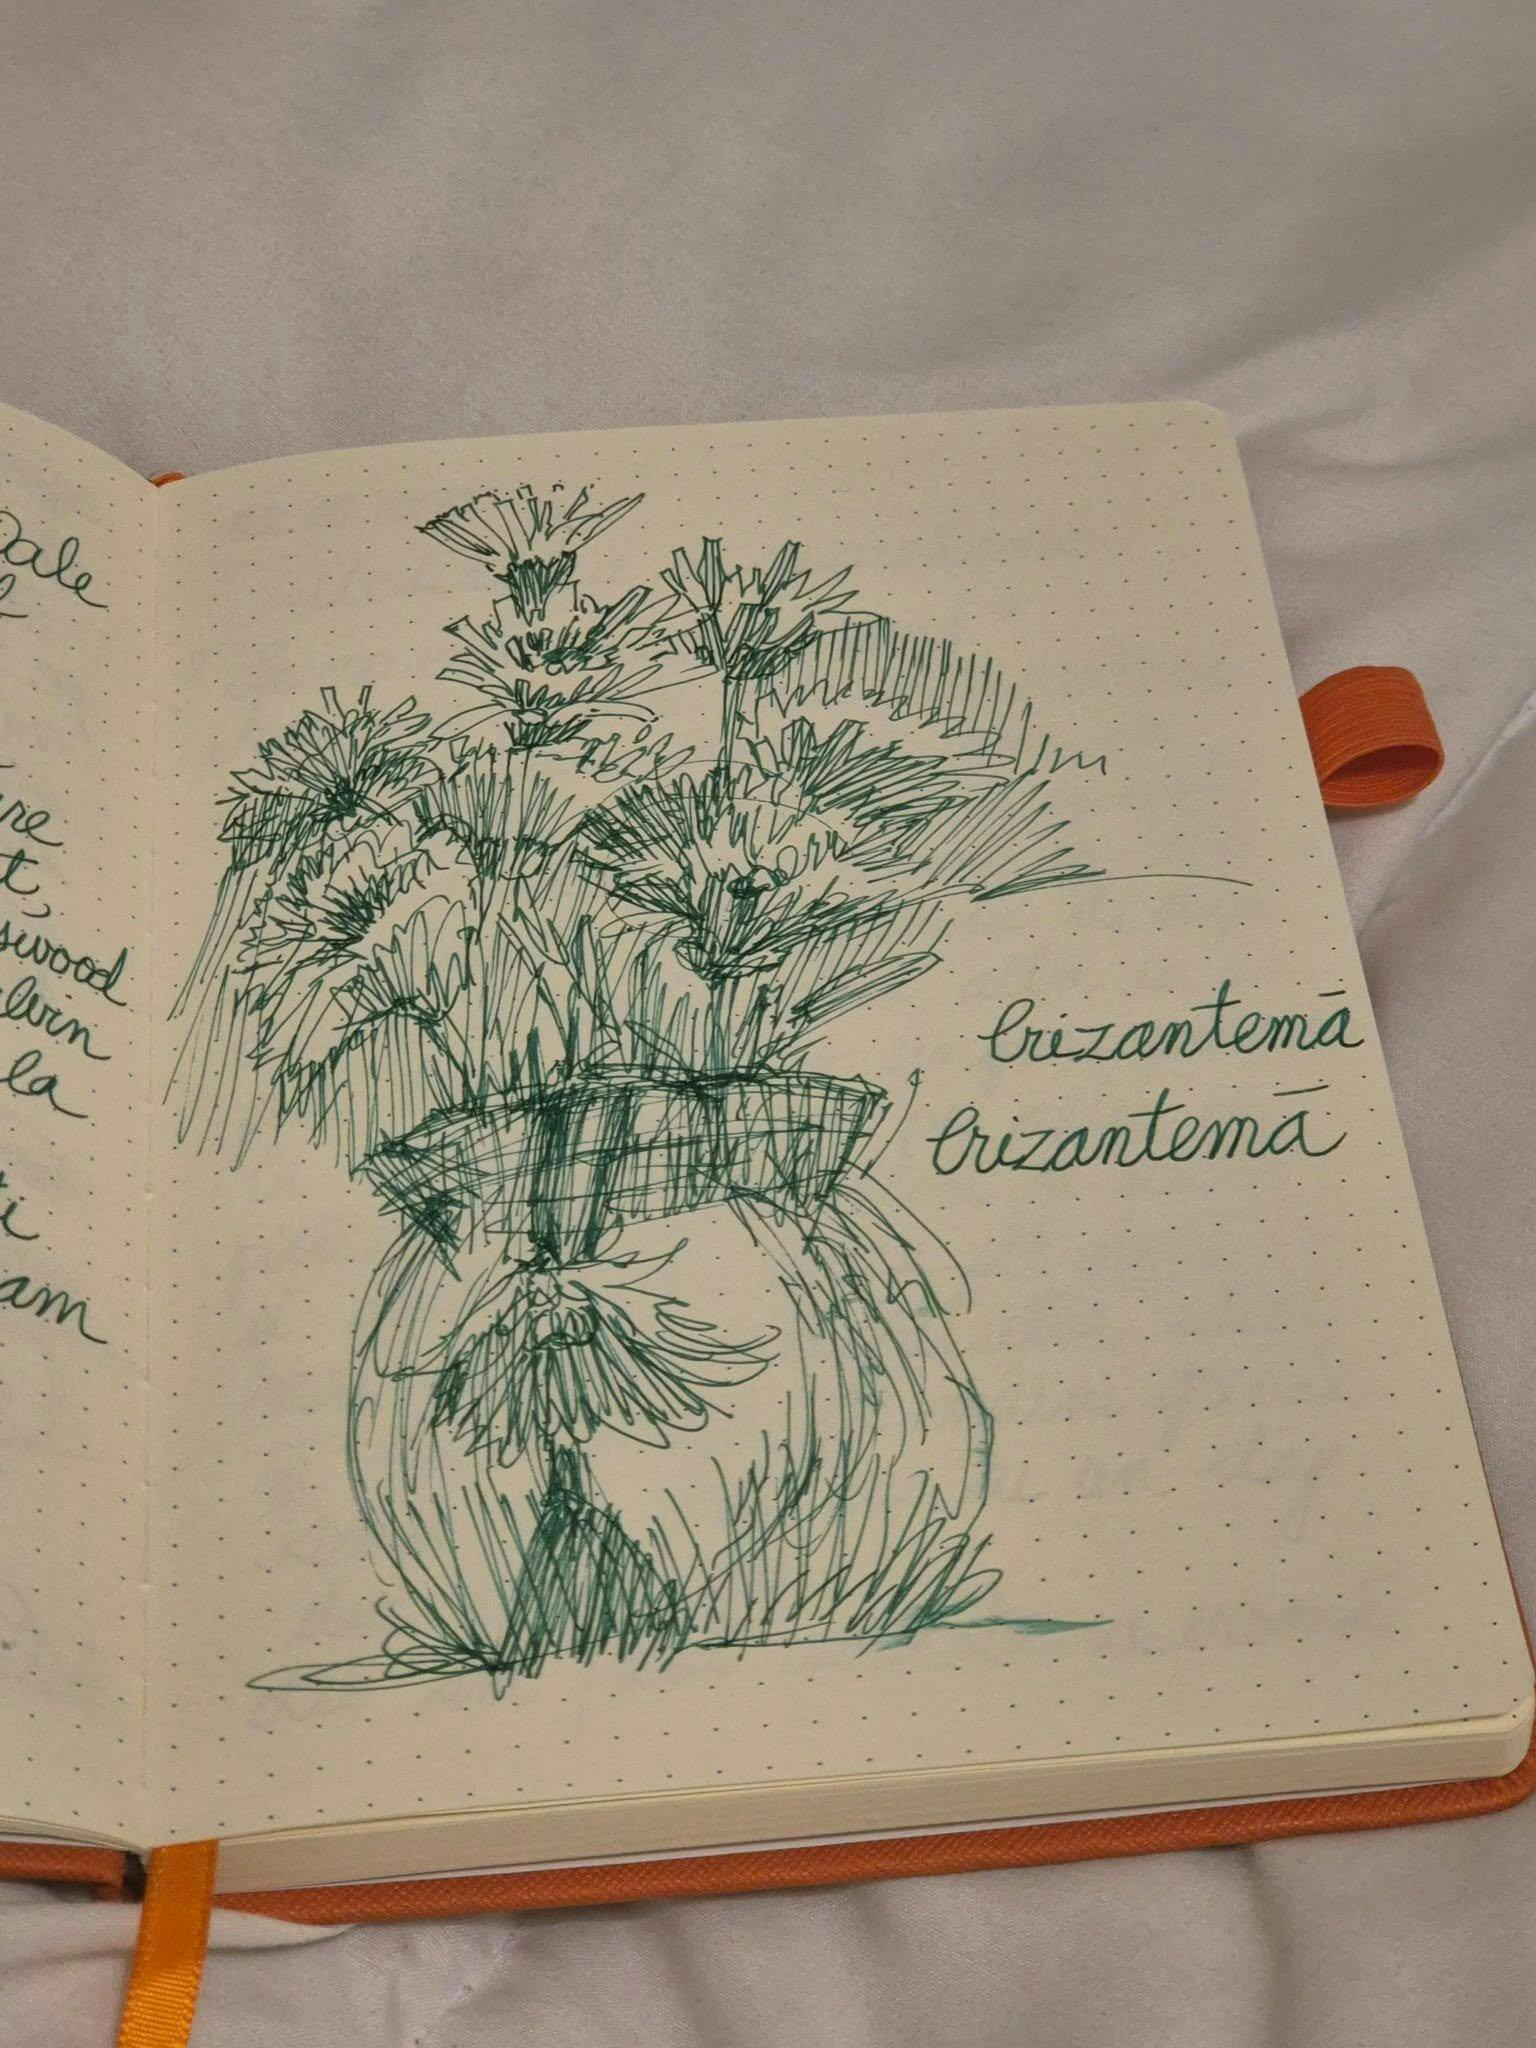 Dale
re
t,
swood
lvin
la
ti
am
Crizantemā
Crizantemā